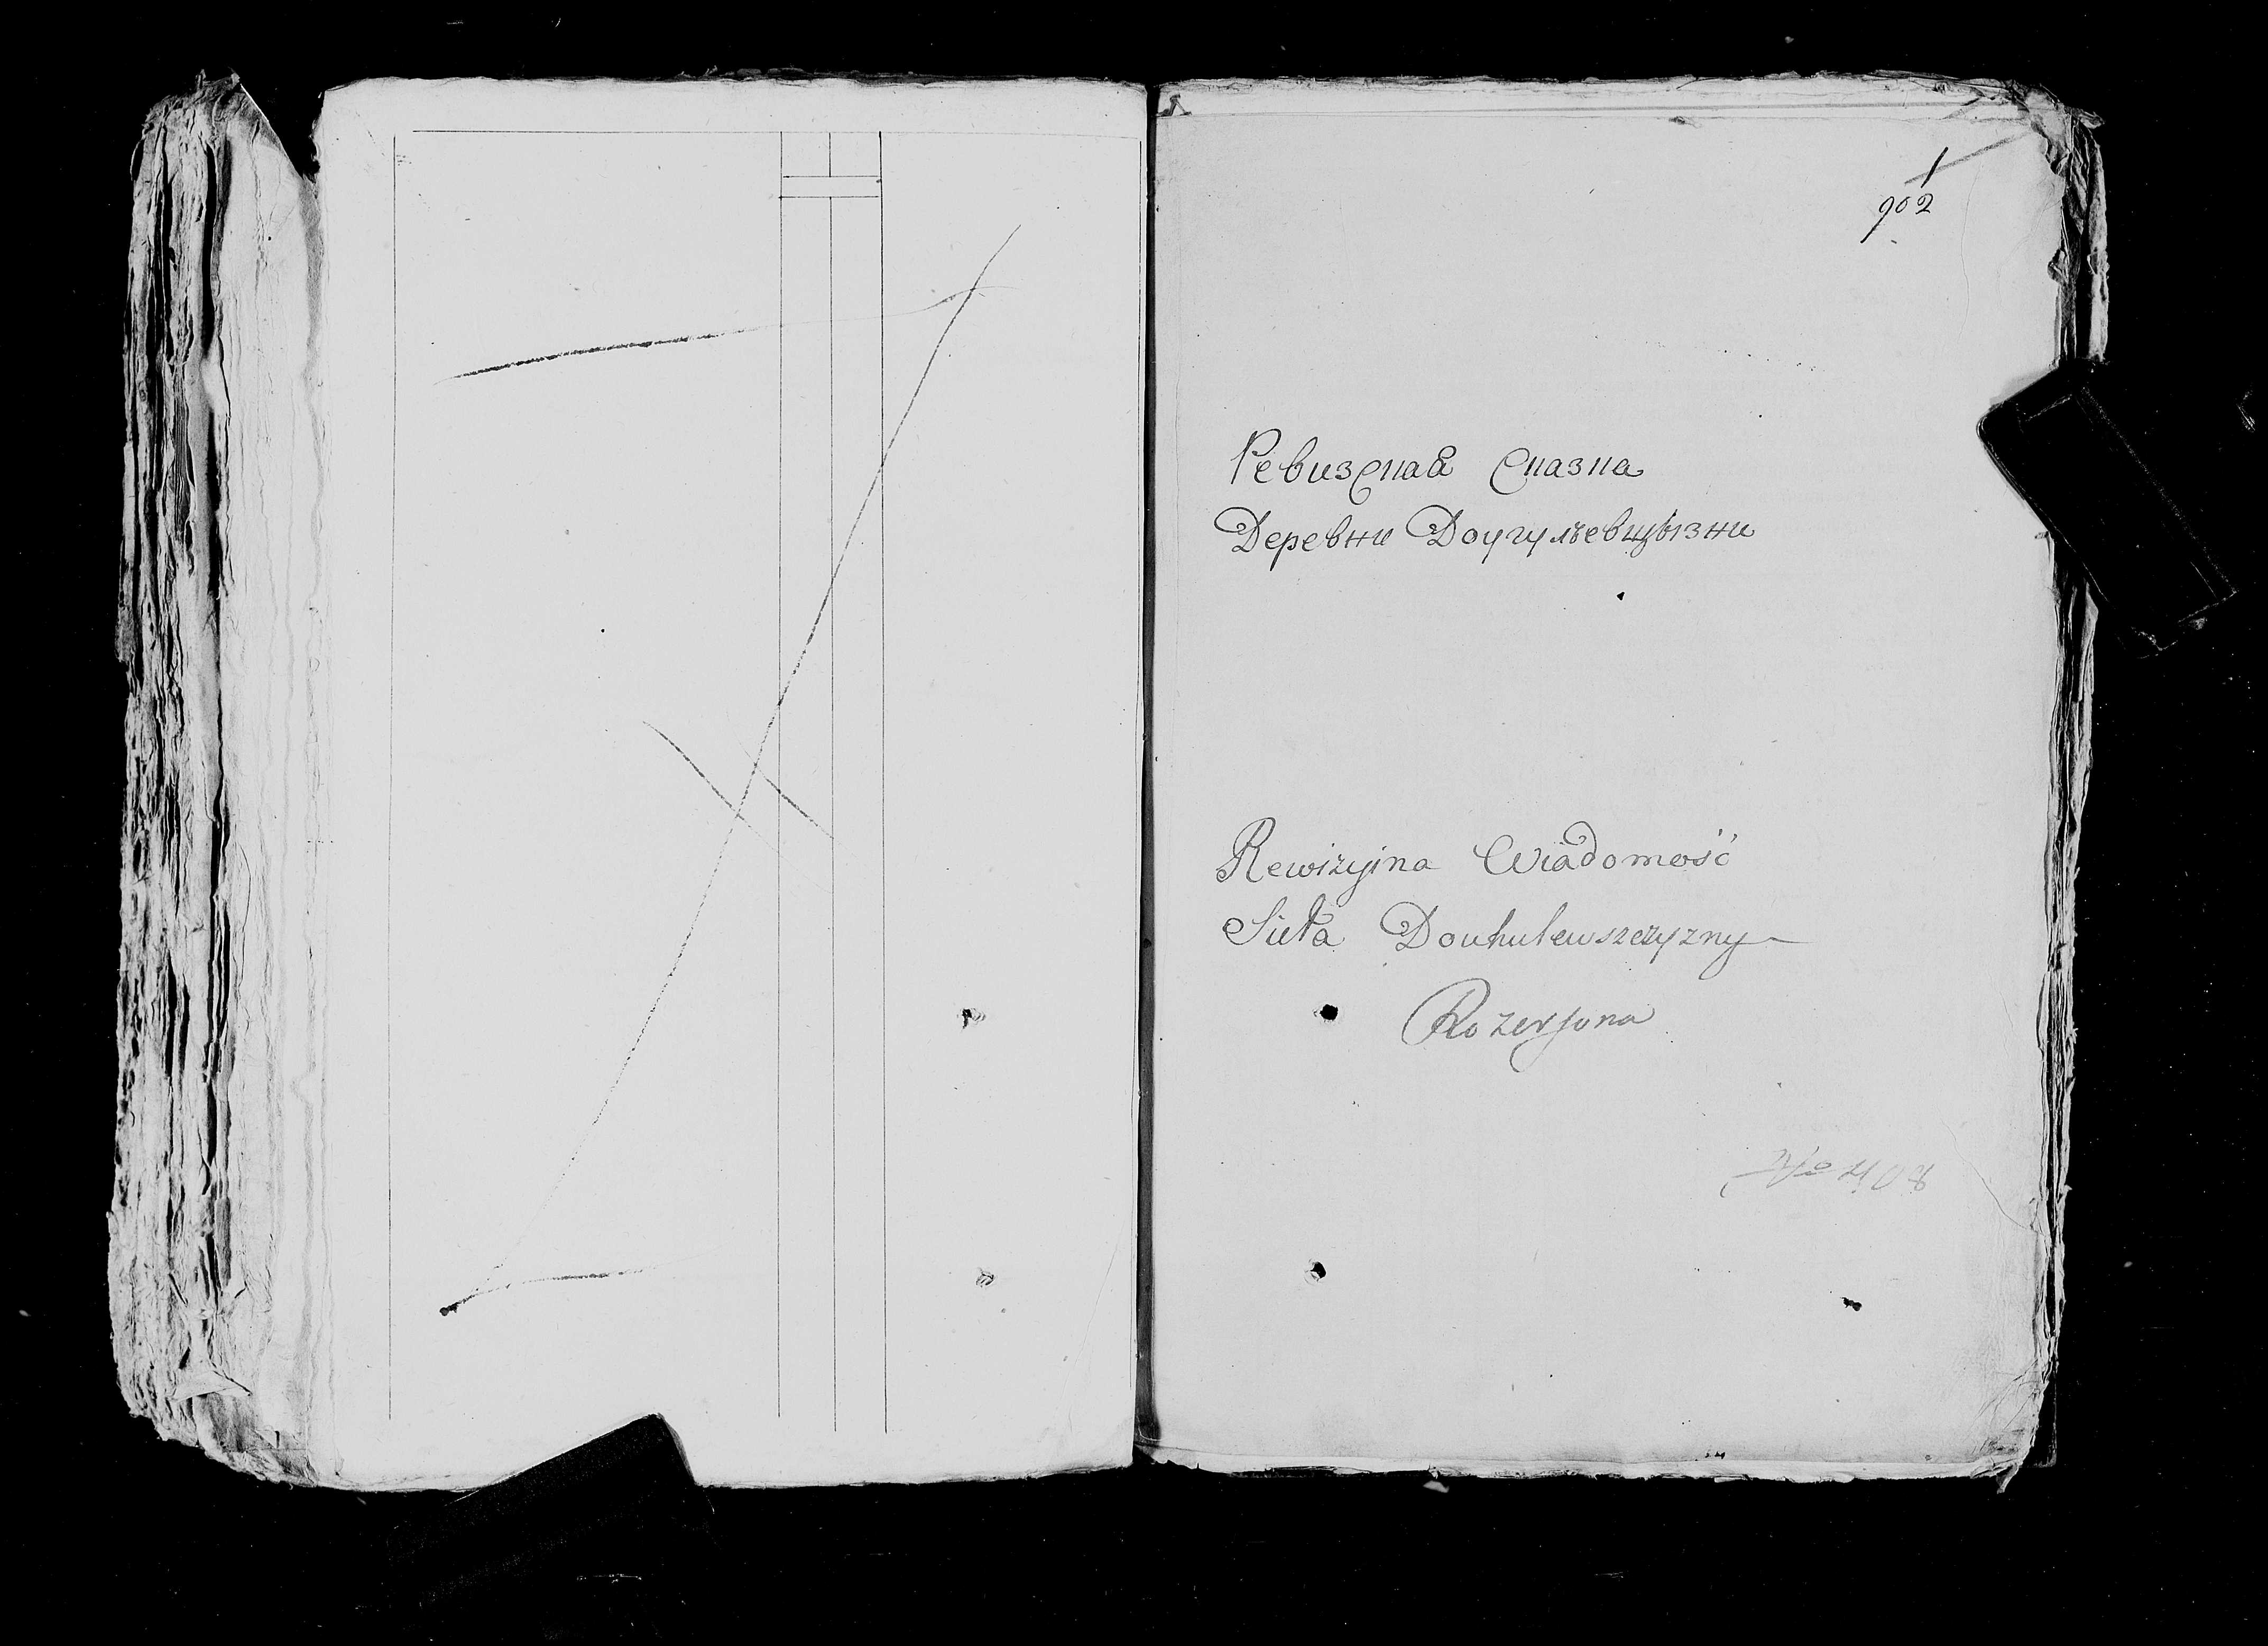 1
902
Ревизская Сказка
Деревни Доугулевщызни
Rewizyina Wiadomość
Sieła Douhulewszczyzny
No 408